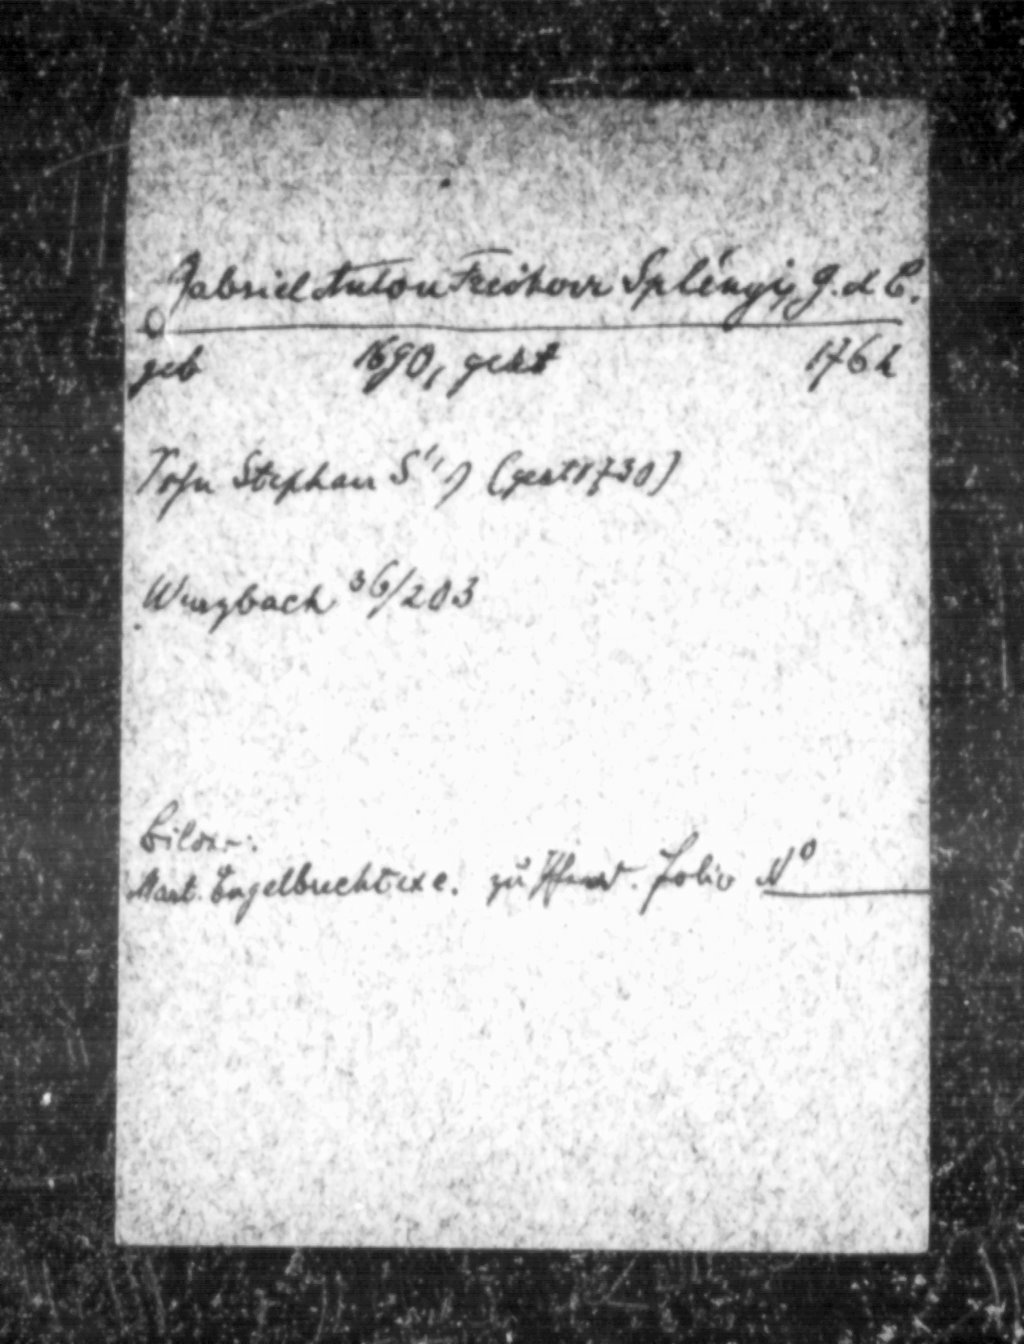 Gabriel Anton Freiherr Splényi, G. d C.
geb 1690, gest 1762
Sohn Stephan S'' (gest 1730)
Wurzbach 36/203
Bilder:
Mart. Engelbrecht exc. zu Pferd. folio N°